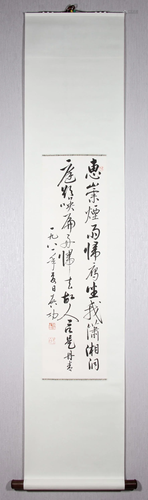 惠崇煙雨歸雁坐我瀟湘洞
庭欲喚扁舟歸去故人言是丹青
一九八一年夏日 啓功